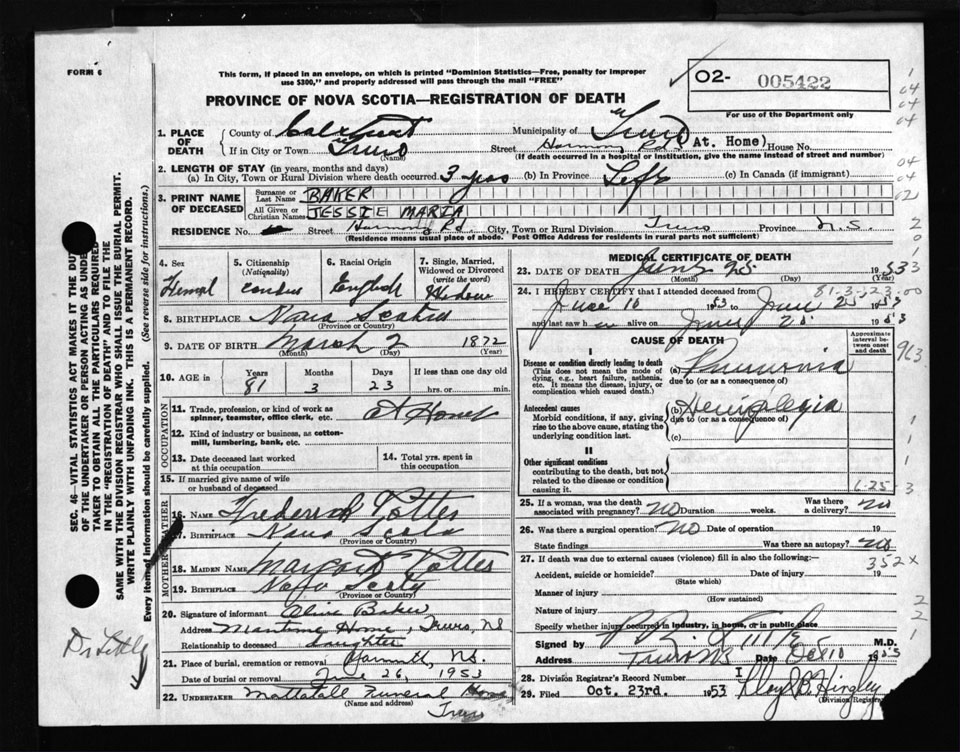 FORM 6
This form, if placed in an envelope, on which is printed "Dominion Statistics—Free, penalty for improper
use $300," and properly addressed will pass through the mail "FREE"
02- 005422
For use of the Department only
PROVINCE OF NOVA SCOTIA—REGISTRATION OF DEATH
1. PLACE OF DEATH
County of Colchester Municipality of Truro
If in City or Town Truro (Name) Street Harmony Rd. (At. Home) House No.
(If death occurred in a hospital or institution, give the name instead of street and number)
2. LENGTH OF STAY (in years, months and days)
(a) In City, Town or Rural Division where death occurred. 3 yrs (b) In Province Life (c) In Canada (if immigrant)
3. PRINT NAME OF DECEASED
Surname or Last Name BAKER
All Given or Christian Names JESSIE MARIA
RESIDENCE No. Street Harmony Rd. City, Town or Rural Division Truro Province N.S.
(Residence means usual place of abode. Post Office Address for residents in rural parts not sufficient)
4. Sex
Femal
5. Citizenship (Nationality)
6. Racial Origin
English
7. Single, Married, Widowed or Divorced (write the word)
Widow
8. BIRTHPLACE Nova Scotia
(Province or Country)
9. DATE OF BIRTH March 2 1872
(Month) (Day) (Year)
10. AGE in Years 81 Months 3 Days 23 If less than one day old hrs. or min.
OCCUPATION
11. Trade, profession, or kind of work as spinner, teamster, office clerk, etc. At Home
12. Kind of industry or business, as cotton-mill, lumbering, bank, etc.
13. Date deceased last worked at this occupation
14. Total yrs. spent in this occupation
15. If married give name of wife or husband of deceased
FATHER
16. NAME Frederick Potter
17. BIRTHPLACE Nova Scotia
(Province or Country)
MOTHER
18. MAIDEN NAME Margaret Potter
19. BIRTHPLACE Nova Scotia
(Province or Country)
20. Signature of informant Olive Baker
Address Maritime Home, Truro, NS
Relationship to deceased daughter
21. Place of burial, cremation or removal N.S.
Date of burial or removal June 26, 1953
22. UNDERTAKER Mattatall Funeral Home
(Name and address)
Truro
MEDICAL CERTIFICATE OF DEATH
23. DATE OF DEATH June 25 1953
(Month) (Day) (Year)
81-3-23-00
24. I HEREBY CERTIFY that I attended deceased from
June 10 1953 to June 25 1953
and last saw h alive on June 25 1953
CAUSE OF DEATH
Approximate interval between onset and death
I
Disease or condition directly leading to death
(This does not mean the mode of dying, e.g., heart failure, asthenia, etc. It means the disease, injury, or complication which caused death.)
(a) Pneumonia
due to (or as a consequence of)
Antecedent causes
Morbid conditions, if any, giving rise to the above cause, stating the underlying condition last.
(b) Hemiplegia
due to (or as a consequence of)
(c)
II
Other significant conditions
contributing to the death, but not related to the disease or condition causing it.
25. If a woman, was the death associated with pregnancy? NO Duration weeks. Was there a delivery? no
26. Was there a surgical operation? NO Date of operation 19
State findings Was there an autopsy? no
27. If death was due to external causes (violence) fill in also the following:—
352 x
Accident, suicide or homicide? Date of injury 19
(State which)
Manner of injury
(How sustained)
Nature of injury
Specify whether injury occurred in industry, in home, or in public place
Signed by M.D.
Address Truro NS Date Oct 10
28. Division Registrar's Record Number I
29. Filed Oct. 23rd. 1953
(Division Registrar)
SEC. 46—VITAL STATISTICS ACT MAKES IT THE DUTY
OF THE UNDERTAKER OR PERSON ACTING AS UNDERTAKER
TO OBTAIN ALL THE PARTICULARS REQUIRED
IN THE "REGISTRATION OF DEATH" AND TO FILE THE
SAME WITH THE DIVISION REGISTRAR WHO SHALL ISSUE THE BURIAL PERMIT.
WRITE PLAINLY WITH UNFADING INK. THIS IS A PERMANENT RECORD.
Every item of information should be carefully supplied. (See reverse side for instructions.)